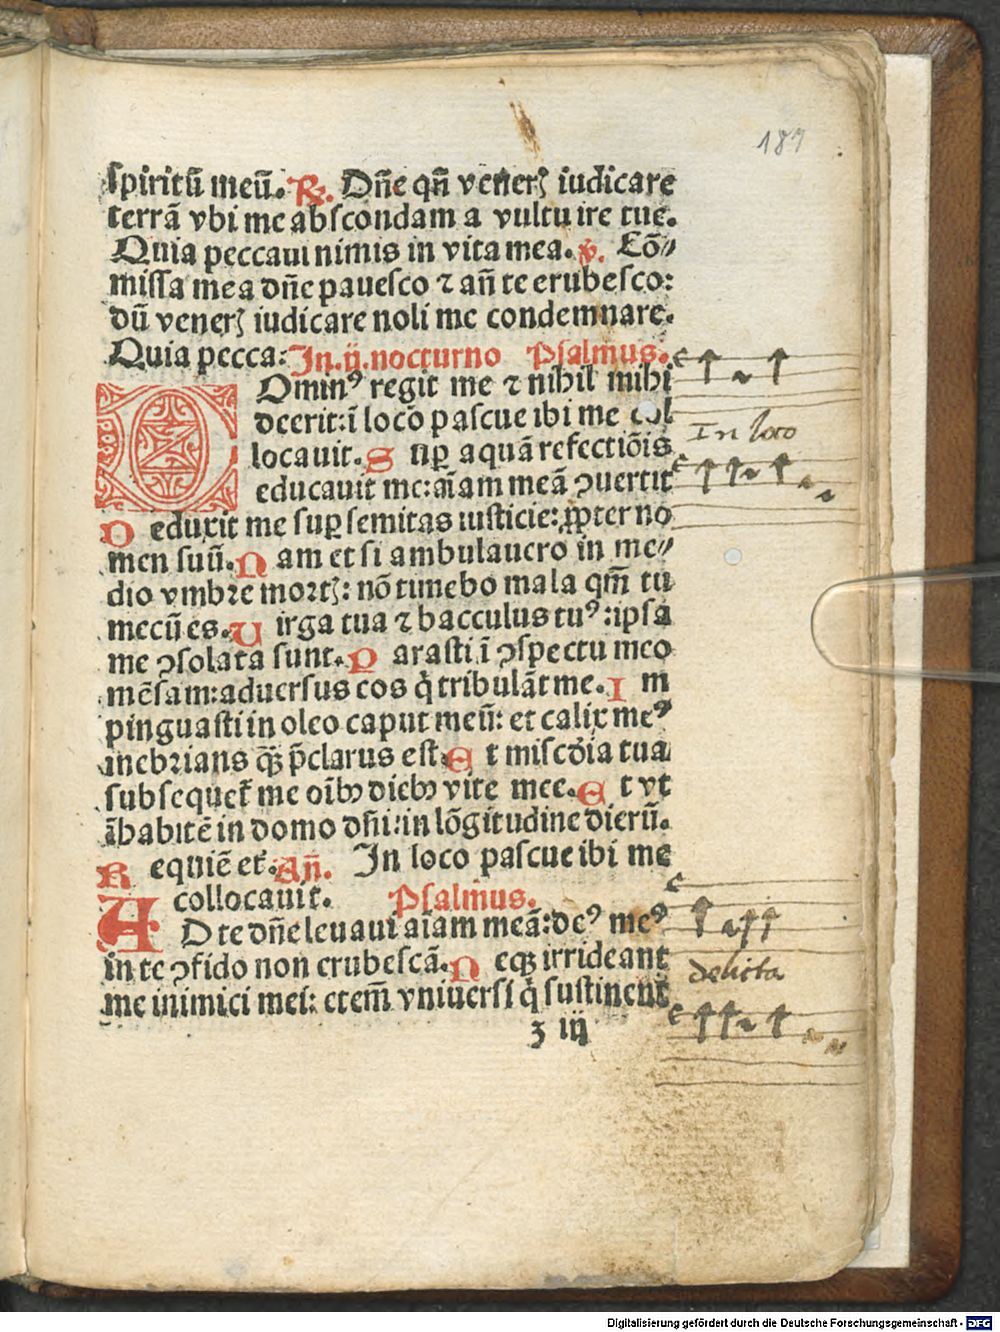 187
spiritū meū. R. Dn̄e qn̄ vener̄ꝫ iudicare
terrā vbi me abscondam a vultu ire tue.
Quia peccaui nimis in vita mea. v. Cō⸗
missa mea dn̄e pauesco ⁊ an̄ te erubesco:
dū venerꝫ iudicare noli me condemnare.
Quia pecca: In.ij.nocturno Psalmus.
Dominꝰ regit me ⁊ nihil mihi
deerit: ī loco pascue ibi me col
locauit. S uꝑ aquā refectiōis
educauit me: aīam meā ꝯuertit
D eduxit me suꝑ semitas iusticie: ꝓpter no
men suū. N am et si ambulauero in me⸗
dio vmbre mortꝫ: nō timebo mala qm̄ tu
mecū es. V irga tua ⁊ bacculus tuꝰ: ipsa
me ꝯsolata sunt. P arasti ī ꝯspectu meo
mēsam: aduersus eos q̇ tribulāt me. I m
pinguasti in oleo caput meū: et calix meꝰ
inebrians q̄ꝫ p̄clarus est. E t miscd̄ia tua
subsequet̄ me oībꝫ diebꝫ vite mee. E t vt
īhabitē in domo dn̄i: in lōgitudine dierū.
R equiē et̄. An̄. In loco pascue ibi me
collocauit. Psalmus.
AD te dn̄e leuaui aīam meā: deꝰ meꝰ
in te ꝯfido non erubescā. N eqꝫ irrideant
me inimici mei: etem̄ vniuersi q̇ sustinent
z iij
In loco
delicta
Digitalisierung gefördert durch die Deutsche Forschungsgemeinschaft - DFG